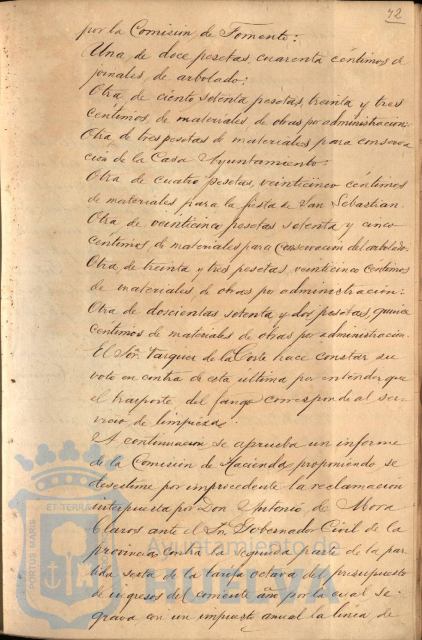 42
por la Comisión de Fomento:
Una de doce pesetas, cuarenta céntimos de
jornales, de arbolado:
Otra de ciento setenta pesetas, treinta y tres
céntimos, de materiales de obras por administración:
Otra de tres pesetas de materiales para conserva
ción de la Casa Ayuntamiento:
Otra de cuatro pesetas, veinticinco céntimos
de materiales para la fiesta de San Sebastian.
Otra de veinticinco pesetas setenta y cinco
centimos de materiales para conservación del arbolado:
Otra de treinta y tres pesetas, veinticinco centimos
de materiales de obras por administración:
Otra de doscientas setenta y dos pesetas, quince
centimos de materiales de obras por administración.
El Sor. Vazquez de la Corte hace constar su
voto en contra de esta última por entender que
el trasporte del fango corresponde al ser-
vicio de limpiezas.
A continuación se aprueba un informe
de la Comisión de Hacienda, proponiendo se
desestime por improcedente la reclamación
interpuesta por Don Antonio de Mora
Claros ante el Sr. Gobernador Civil de la
provincia contra la segunda parte de la par
tida sesta de la tarifa octava del presupuesto
de ingresos del corriente año por la cual se
grava con un impuesto anual la línea de
PORTUS MARIS
ET TERRAE
Ayuntamiento de
HUELVA